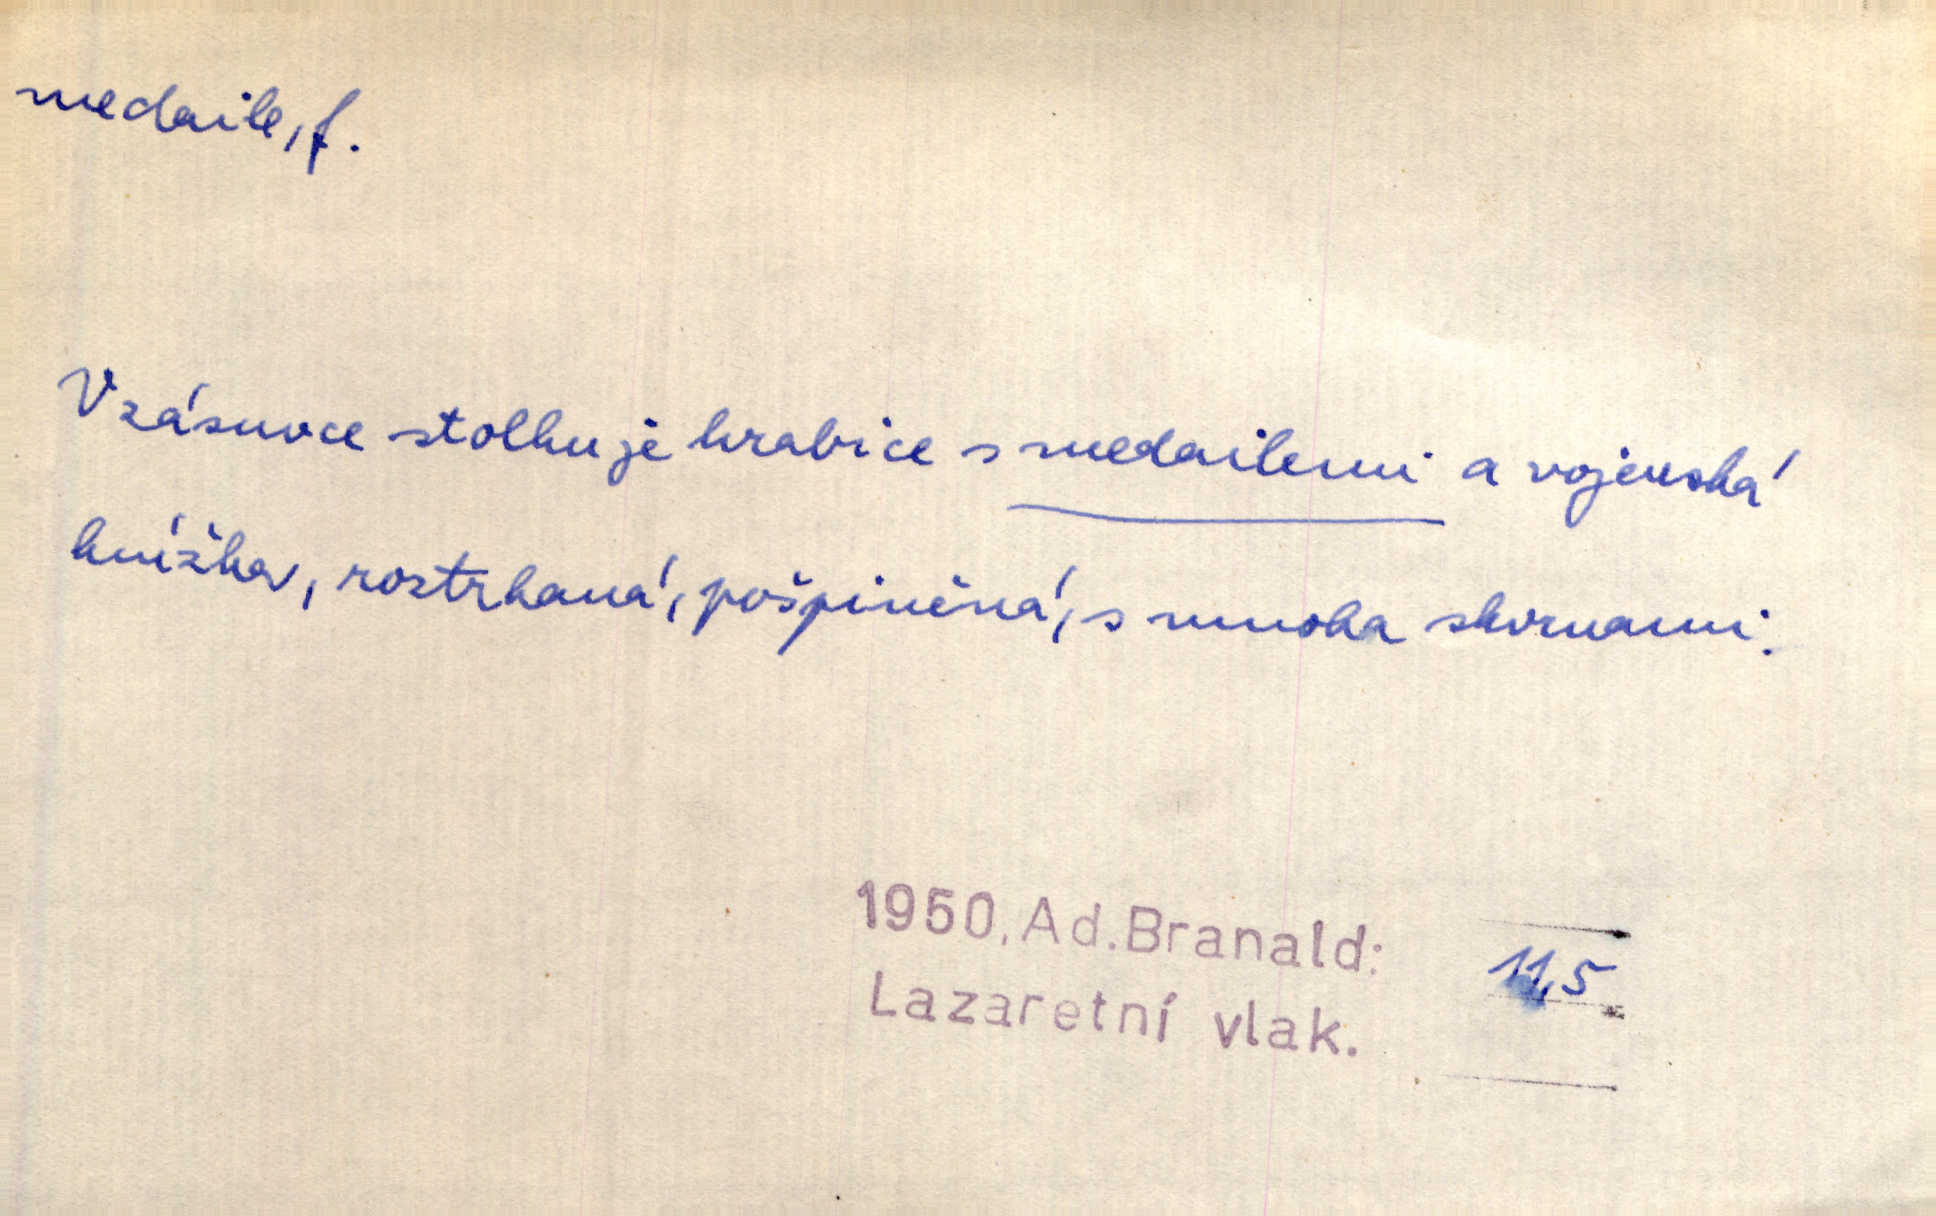 medaile, f.
V zásuvce stolku je krabice s medailemi a vojenská
knížka, roztrhaná, pošpiněná, s mnoha skvrnami.
1950, Ad. Branald:
Lazaretní vlak.
115